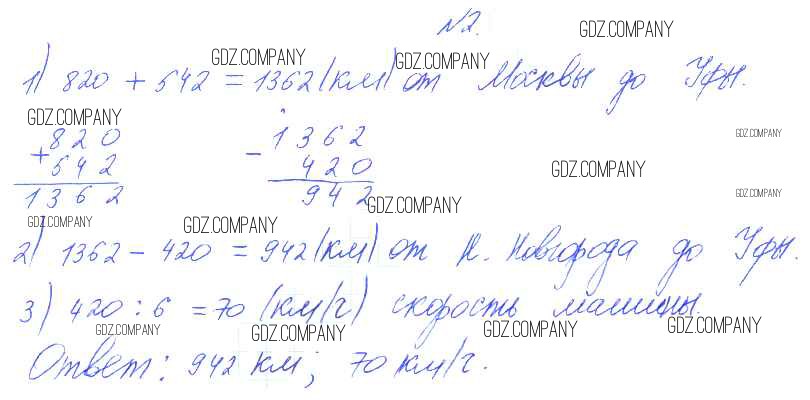 №2.
GDZ.COMPANY
GDZ.COMPANY GDZ.COMPANY
1) 820 + 542 = 1362 (км) от Москвы до Уфы.
GDZ.COMPANY
GDZ.COMPANY
820 1362
+ 542 - 420
1362 942
GDZ.COMPANY
GDZ.COMPANY
GDZ.COMPANY
GDZ.COMPANY GDZ.COMPANY
2) 1362 - 420 = 942 (км) от Н. Новгорода до Уфы.
3) 420 : 6 = 70 (км/ч) скорость машины.
GDZ.COMPANY GDZ.COMPANY GDZ.COMPANY GDZ.COMPANY
Ответ: 942 км; 70 км/ч.